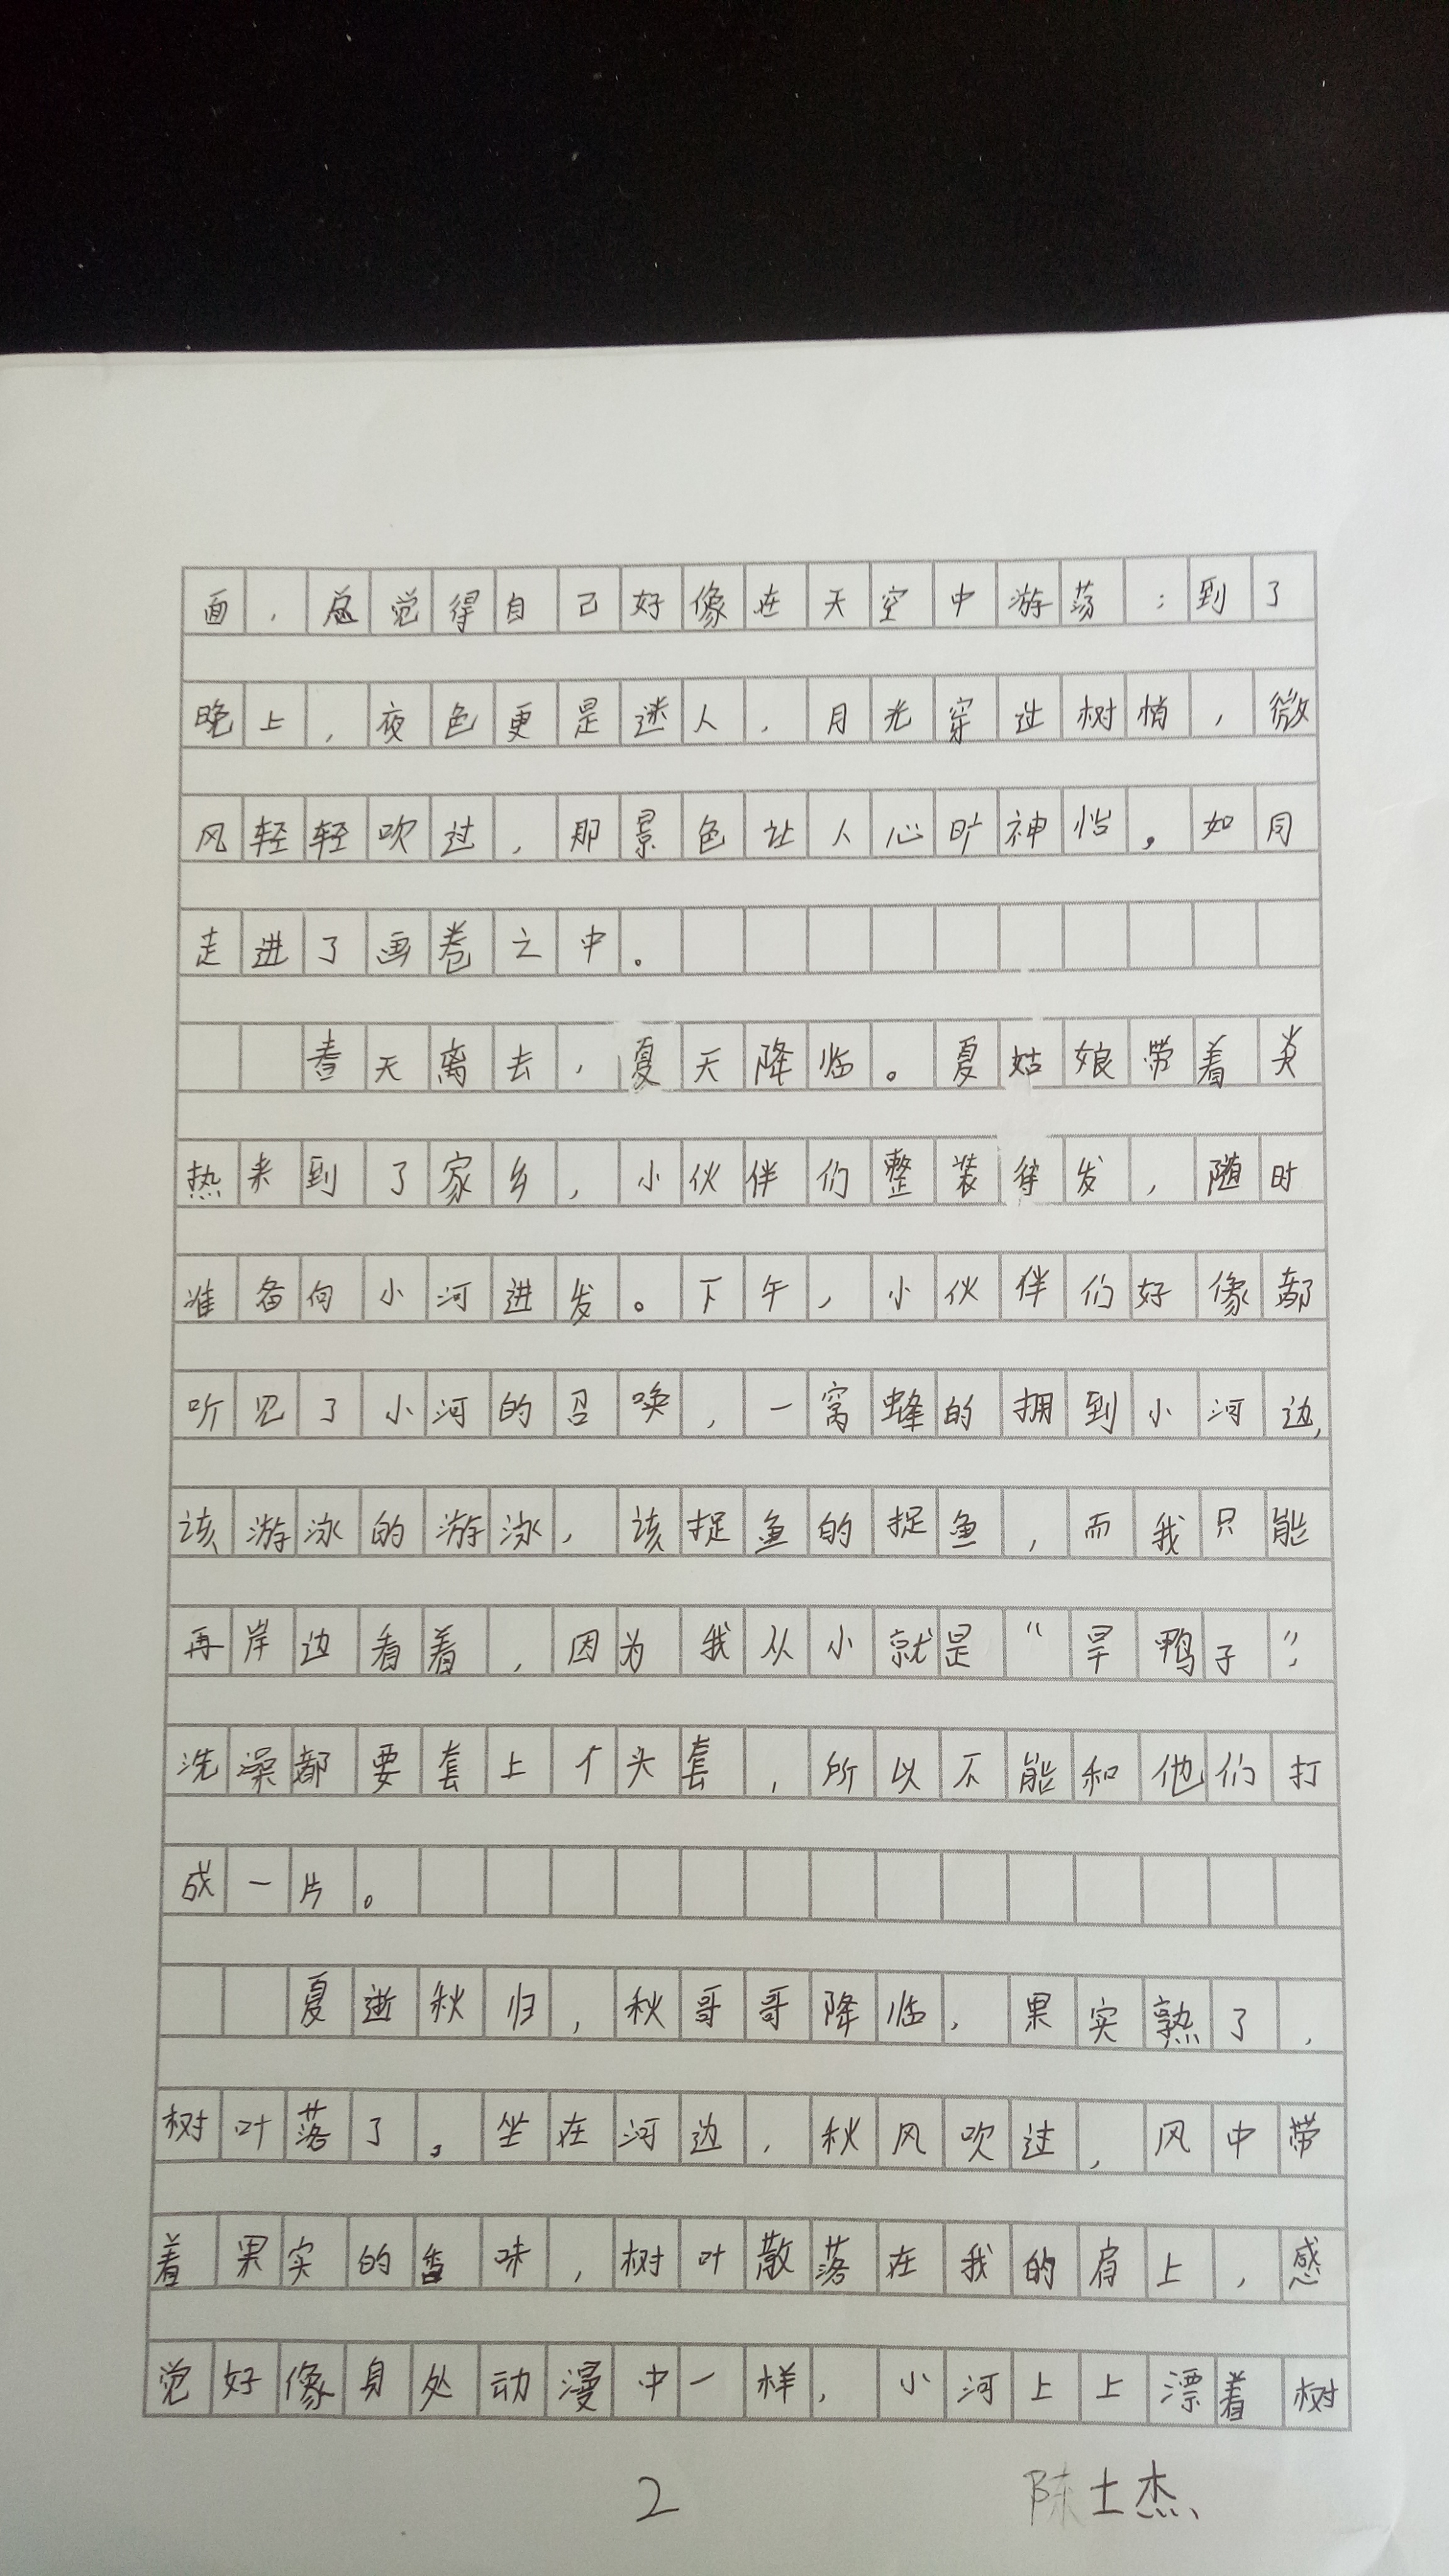 面，总觉得自己好像在天空中游荡；到了
晚上，夜色更是迷人，月光穿过树梢，微
风轻轻吹过，那景色让人心旷神怡。如同
走进了画卷之中。
春天离去，夏天降临。夏姑娘带着炎
热来到了家乡，小伙伴们整装待发，随时
准备向小河进发。下午，小伙伴们好像都
听见了小河的召唤，一窝蜂的拥到小河边，
该游泳的游泳，该捉鱼的捉鱼，而我只能
再岸边看着，因为我从小就是“旱鸭子”，
洗澡都要套上个头套，所以不能和他们打
成一片。
夏逝秋归，秋哥哥降临，果实熟了，
树叶落了。坐在河边，秋风吹过，风中带
着果实的香味，树叶散落在我的肩上，感
觉好像身处动漫中一样，小河上上漂着树
2
陈士杰